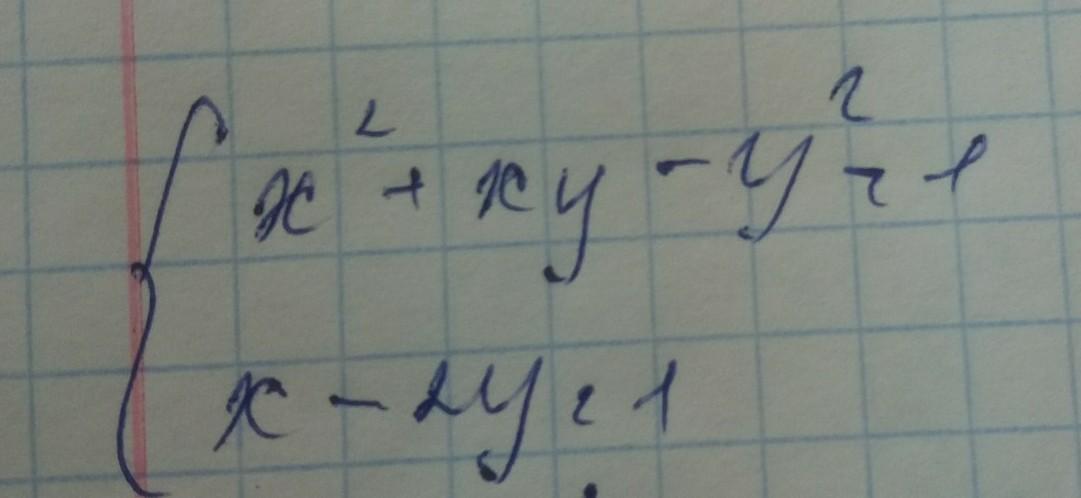 x² + xy - y² = 1
x - 2y = 1